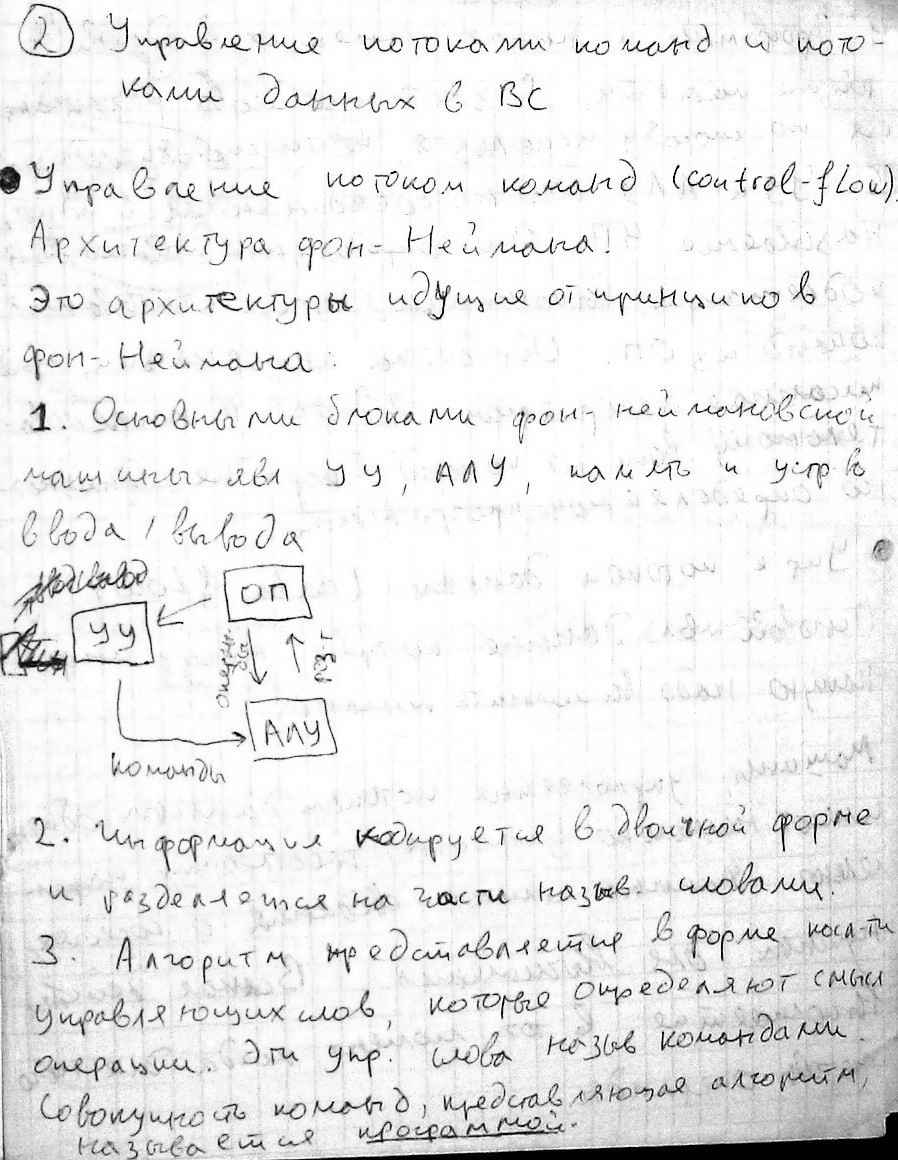 2 Управление потоками команд и пото-
ками данных в ВС
Управление потоком команд (control-flow).
Архитектура фон-Неймана!
Это архитектуры идущие от принципов
фон-Неймана.
1. Основными блоками фон-неймановской
машины явл УУ, АЛУ, память и устр-ва
ввода / вывода
ОП
УУ
операн-
ды
рез-т
АЛУ
команды
2. Информация кодируется в двоичной форме
и разделяется на части назыв словами.
3. Алгоритм представляется в форме посл-ти
управляющих слов, которые определяют смысл
операции. Эти упр. слова назыв командами.
Совокупность команд, представляющая алгоритм,
называется программой.